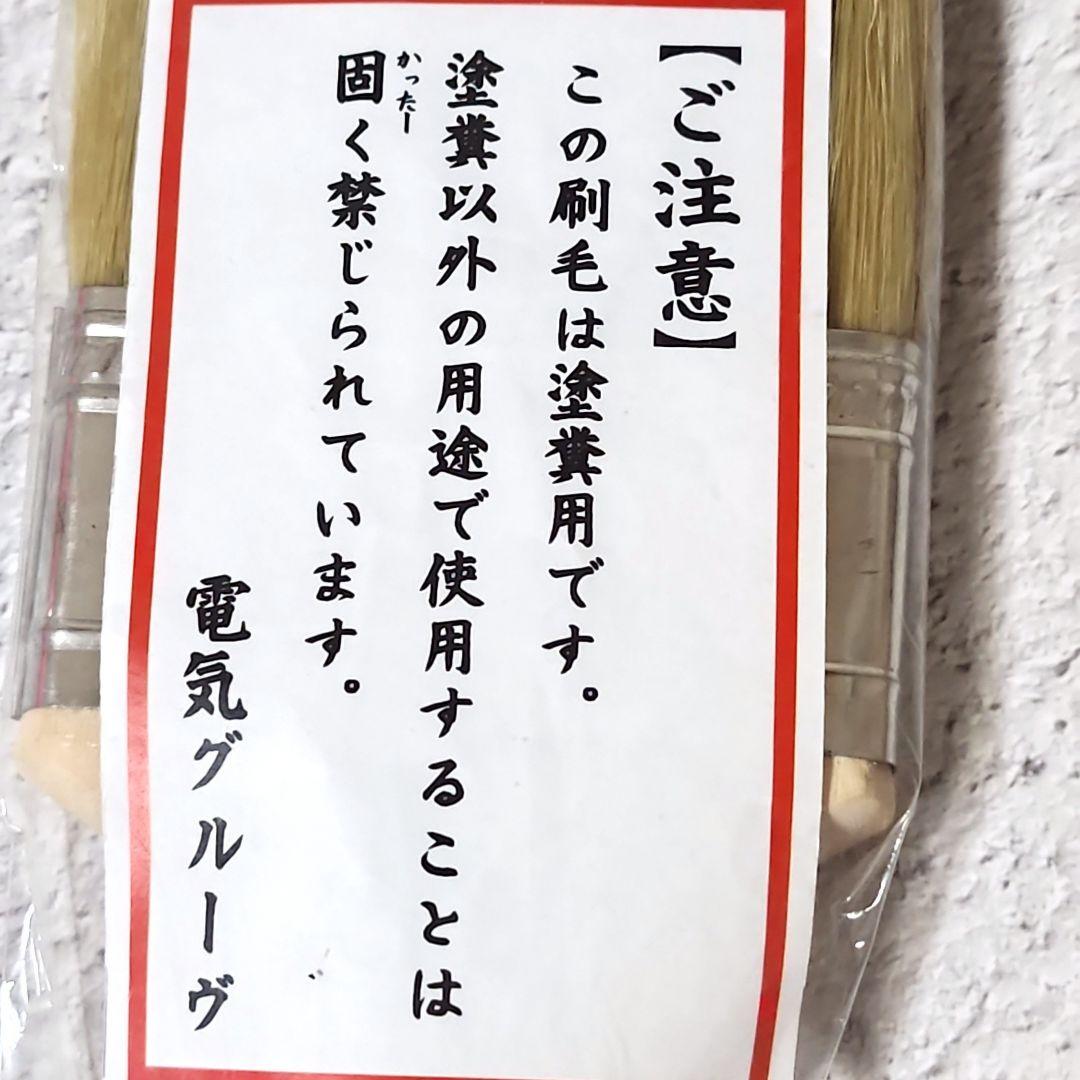 【ご注意】
この刷毛は塗糞用です。
塗糞以外の用途で使用することは
かったー
固く禁じられています。
電気グルーヴ